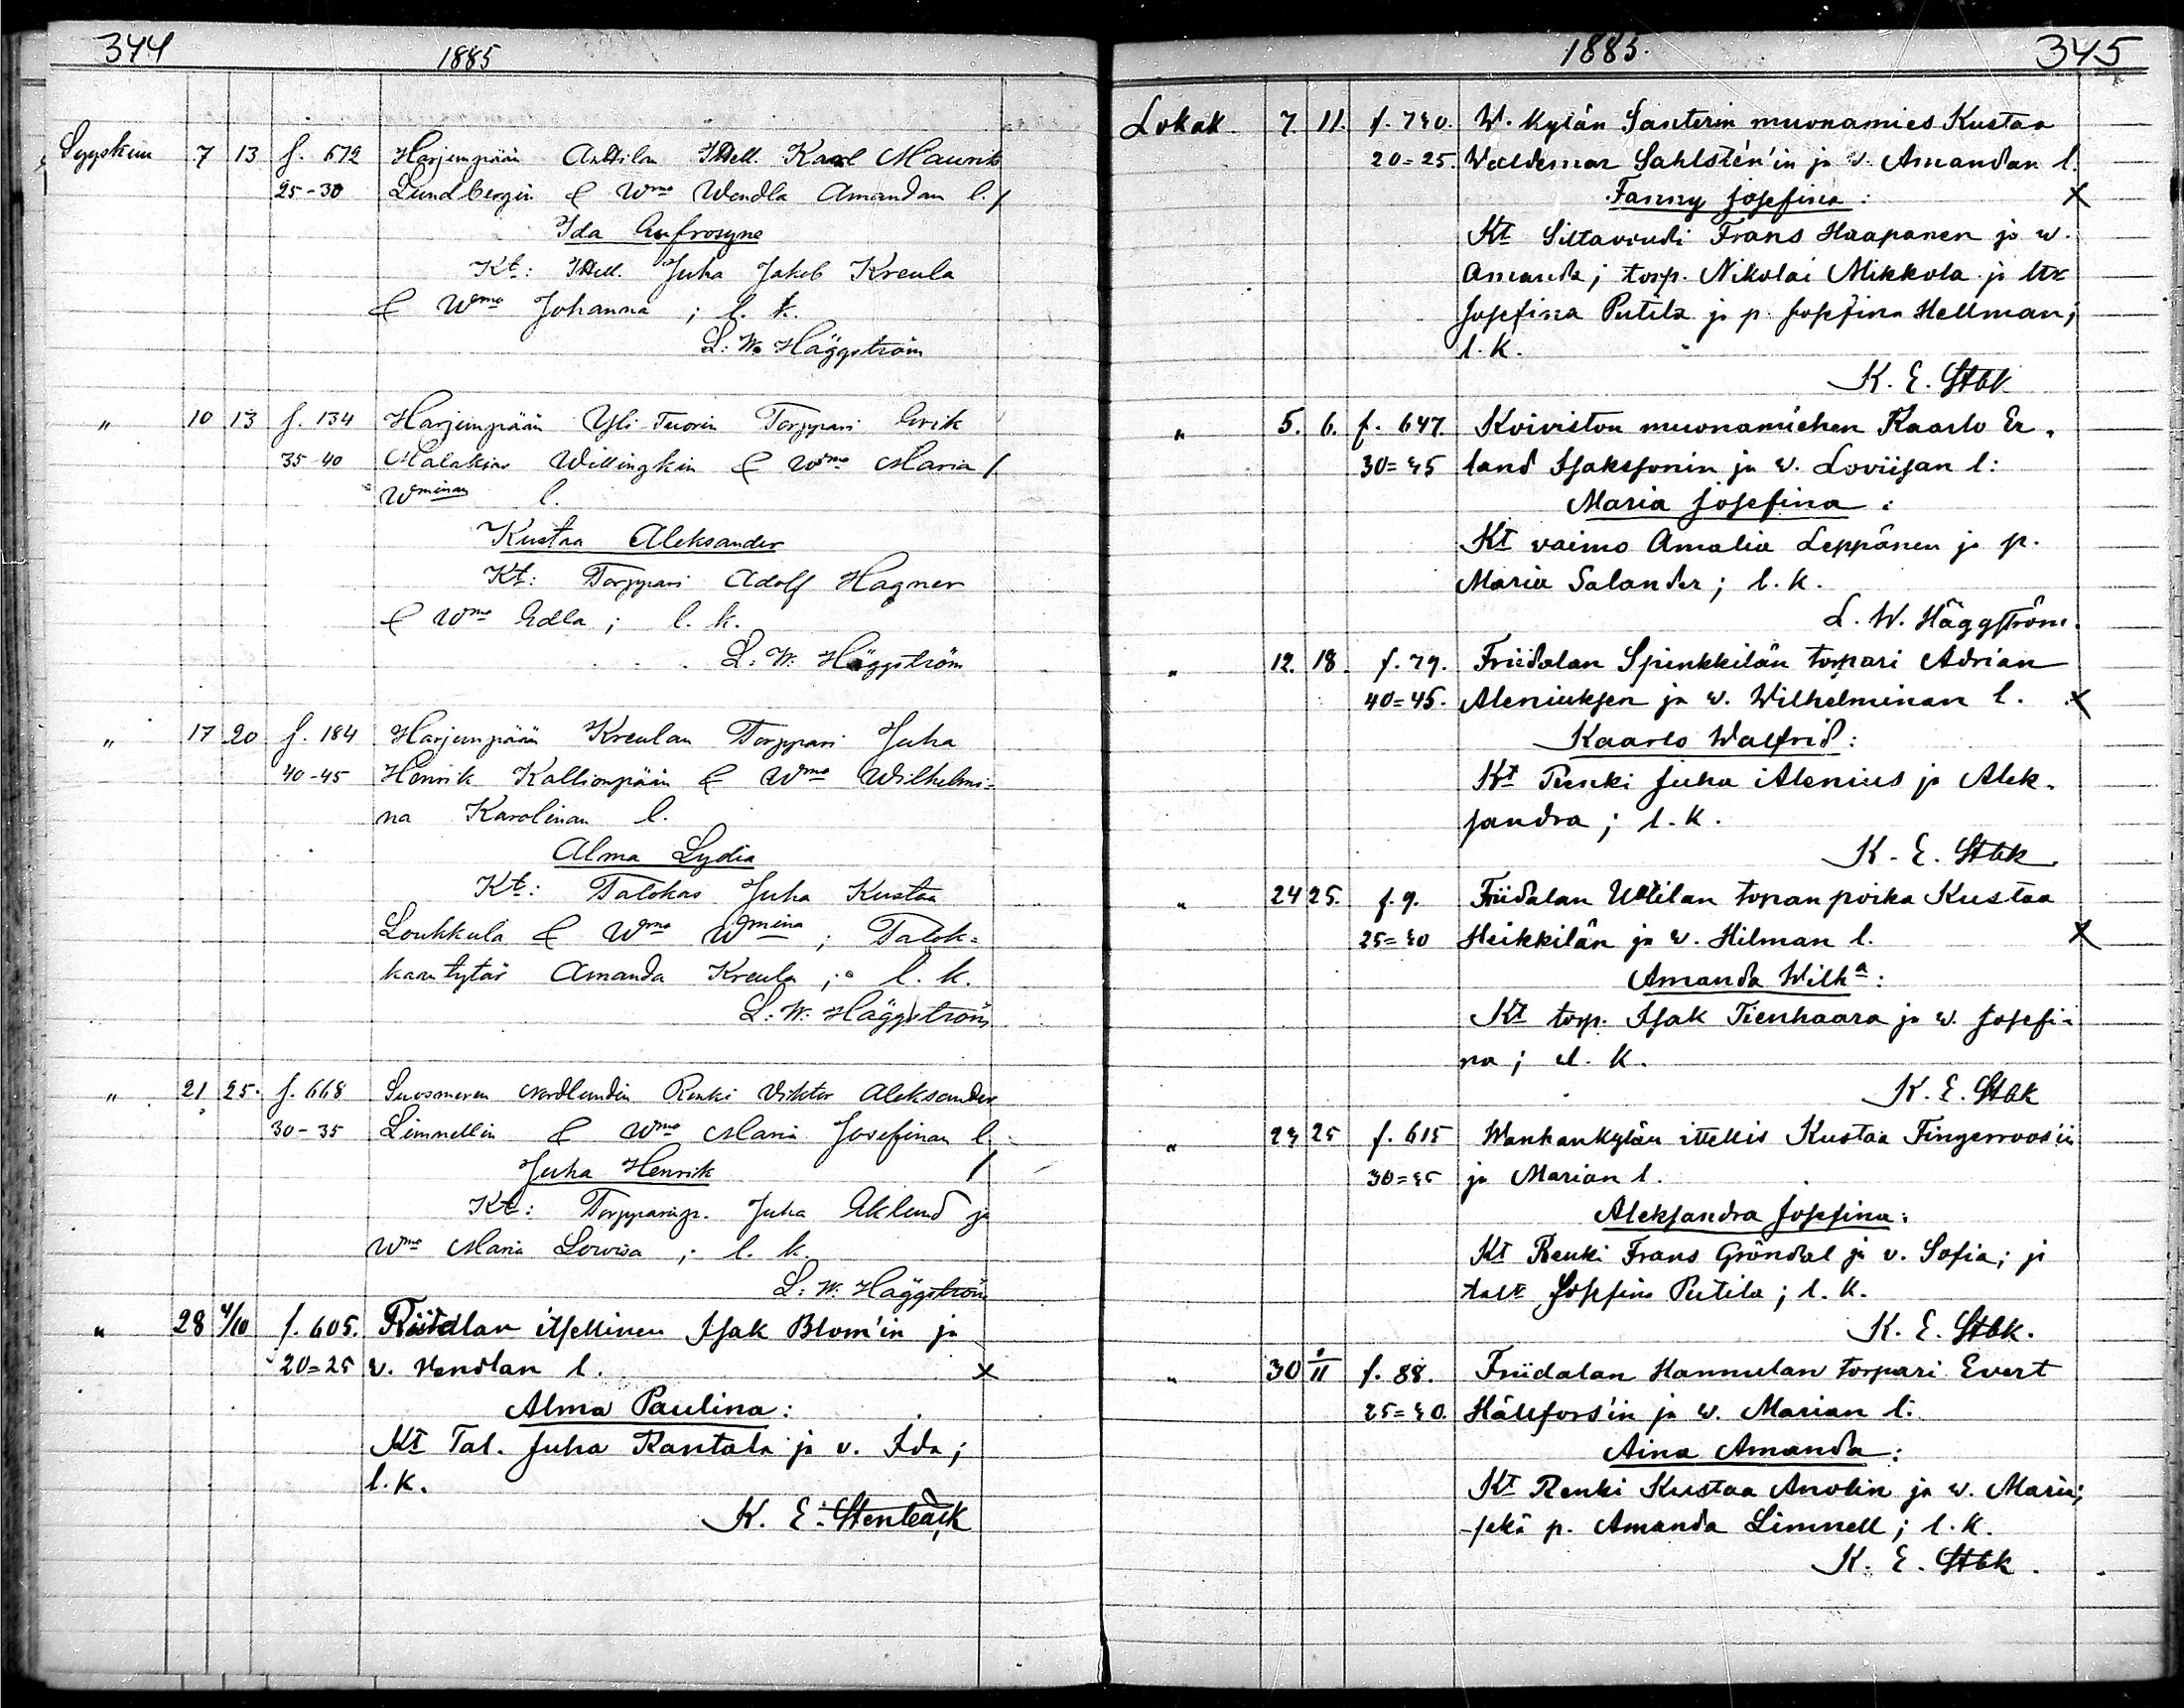 344 1885
Syyskuu 7 13 f. 672 Harjunpään Anttilan Itsell. Karl Maurits
25-30 Lundbergin & Wmo Wendla Amandan l. /
Ida Eufrosyne
Kt: Itsell. Juha Jakob Kreula
& Wmo Johanna ; l. k.
L. W. Häggström
" 10 13 f. 134 Harjunpään Yli Tuorin Torppari Erik
35-40 Malakias Willingkin & Wmo Maria /
Wminan l.
Kustaa Aleksander
Kt: Torppari Adolf Hagner
& Wmo Edla ; l. k.
L. W. Häggström
" 17 20 f. 184 Harjunpään Kreulan Torppari Juha
40-45 Henrik Kallionpään & Wmo Wilhelmi=
na Karolinan l.
Alma Lydia
Kt: Talokas Juha Kustaa
Louhkula & Wmo Wmina ; Talok=
kaan tytär Amanda Kreula ; l. k.
L. W. Häggström
" 21 25. f. 668 Suosmeren Nordlundin Renki Viktor Aleksander
30-35 Limnellin & Wmo Maria Josefinan l.
Juha Henrik /
Kt: Torpparinp. Juha Eklund ja
Wmo Maria Lovisa ; l. k.
L. W. Häggström
" 28 4/10 f. 605. Friidalan itsellinen Isak Blom'in ja
20=25 v. Vendlan l. x
Alma Paulina:
Kt Tal. Juha Rantala ja v. Ida;
l. k.
K. E. Stenbäck
1885. 345
Lokak. 7. 11. f. 740. W. kylän Santerin muonamies Kustaa
20=25. Waldemar Sahlstén'in ja v. Amandan l.
Fanny Josefina: x
Kt Siltavouti Frans Haapanen ja w.
Amanda; torp. Nikolai Mikkola ja ttr
Josefina Putila ja p. Josefina Hellman;
l. k.
K. E. Stbk
" 5. 6. f. 647. Koiviston muonamiehen Kaarlo Er-
30=45 land Isaksonin ja w. Loviisan l:
Maria Josefina:
Kt vaimo Amalia Leppänen ja p.
Maria Salander; l. k.
L. W. Häggström.
" 12. 18. f. 79. Friidalan Spinkkilän torpari Adrian
40=45. Aleniuksen ja w. Wilhelminan l. x
Kaarlo Walfrid:
Kt Renki Juha Alenius ja Alek-
sandra; l. k.
K. E. Stbk
" 24 25. f. 9. Friidalan Uttilan torpan poika Kustaa
25=30 Heikkilän ja w. Hilman l. x
Amanda Wilha:
Kt torp. Isak Tienhaara ja w. Josefi-
na; l. k.
K. E. Stbk
" 23 25 f. 615 Wanhankylän ittellis Kustaa Fingerroos'in
30=35 ja Marian l.
Aleksandra Josefina:
Kt Renki Frans Gröndal ja v. Sofia; ja
Josefina Putila; l. k.
K. E. Stbk.
" 30 1/11 f. 88. Friidalan Hannulan torpari Evert
25=30. Hällfors'in ja w. Marian l.
Aina Amanda:
Kt Renki Kustaa Anolin ja w. Maria;
sekä p. Amanda Limnell; l. k.
K. E. Stbk.